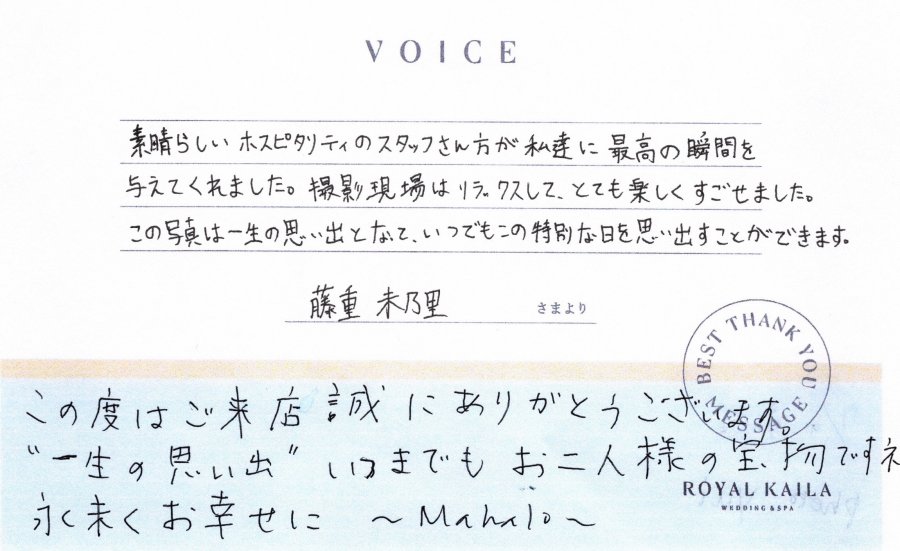 VOICE
素晴らしいホスピタリティのスタッフさん方が私達に最高の瞬間を
与えてくれました。撮影現場はリラックスして、とても楽しくすごせました。
この写真は一生の思い出となって、いつでもこの特別な日を思い出すことができます。
藤重 未乃里 さまより
BEST THANK YOU MESSAGE
この度はご来店誠にありがとうございます。
"一生の思い出" いつまでもお二人様の宝物ですネ
永く末くお幸せに ～Mahalo～
ROYAL KAILA
WEDDING & SPA